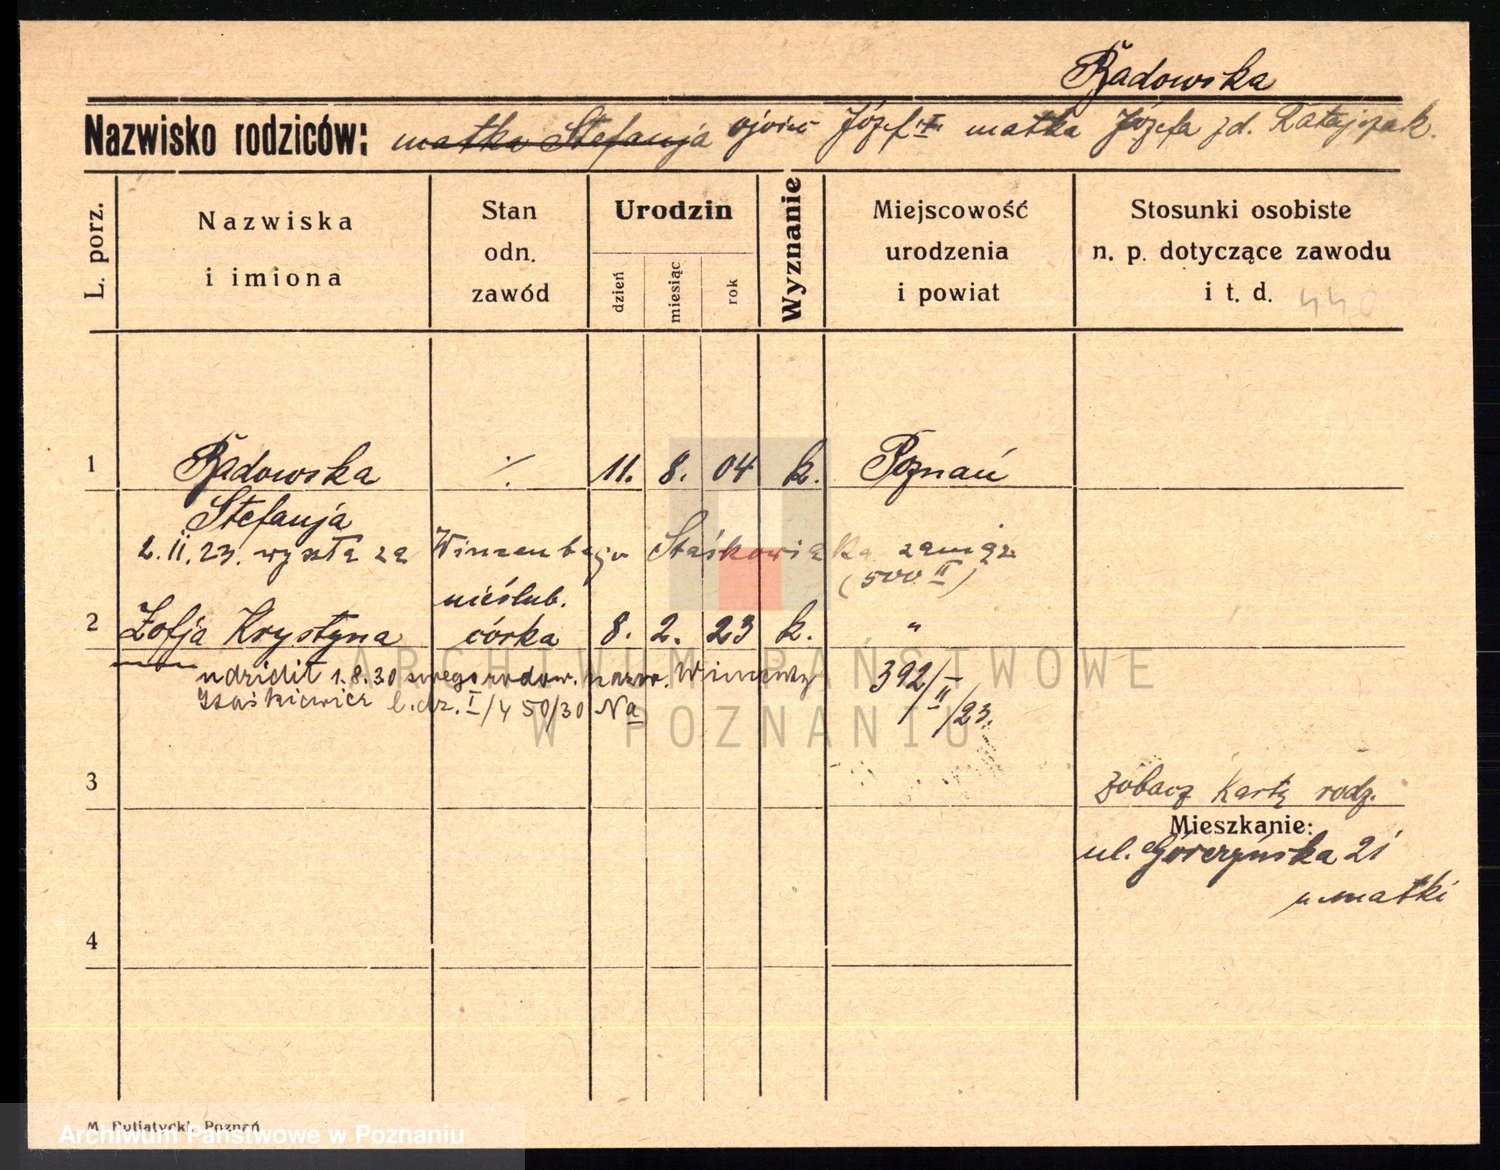 Radowska
Nazwisko rodziców: matka Stefanja ojciec Józef I matka Józefa zd. Ratajczak.
L. porz.
Nazwiska
i imiona
Stan
odn.
zawód
Urodzin
dzień
miesiąc
rok
Wyznanie
Miejscowość
urodzenia
i powiat
Stosunki osobiste
n. p. dotyczące zawodu
i t. d. 440
1 Radowska % 11. 8. 04 k. Poznań
Stefanja
2.II.23. wyszła za Wincentego Staśkowiaka zamąż
(500 II)
nieślub.
2 Zofja Krystyna córka 8. 2. 23 k. "
udzielił 1.8.30 swego rodow. nazw. Wincenty
Staśkiewicz l.dz. I/450/30 Na
392/I
II/23.
ARCHIWUM PAŃSTWOWE
W POZNANIU
3
zobacz Kartę rodz.
Mieszkanie:
ul. Górczyńska 21
u matki
4
M. Putiatycki, Poznań
Archiwum Państwowe w Poznaniu